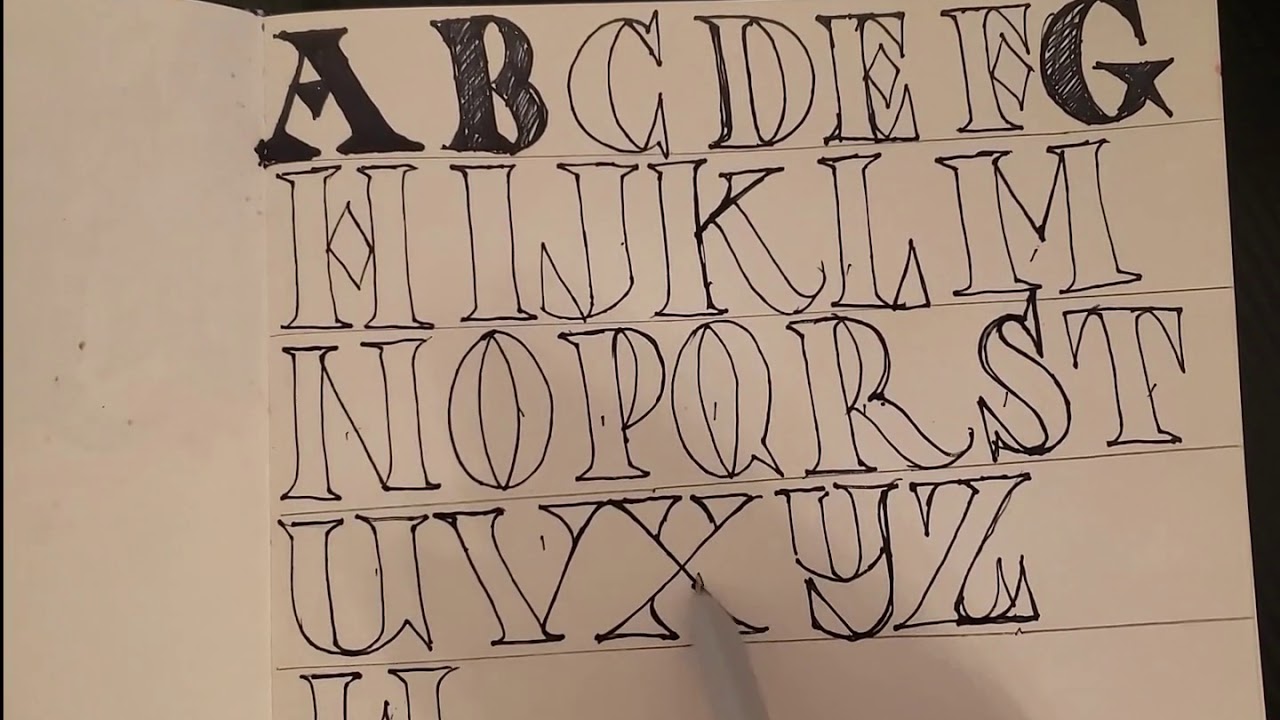 A B C D E F G
H I J K L M
N O P Q R S T
U V X Y Z
W